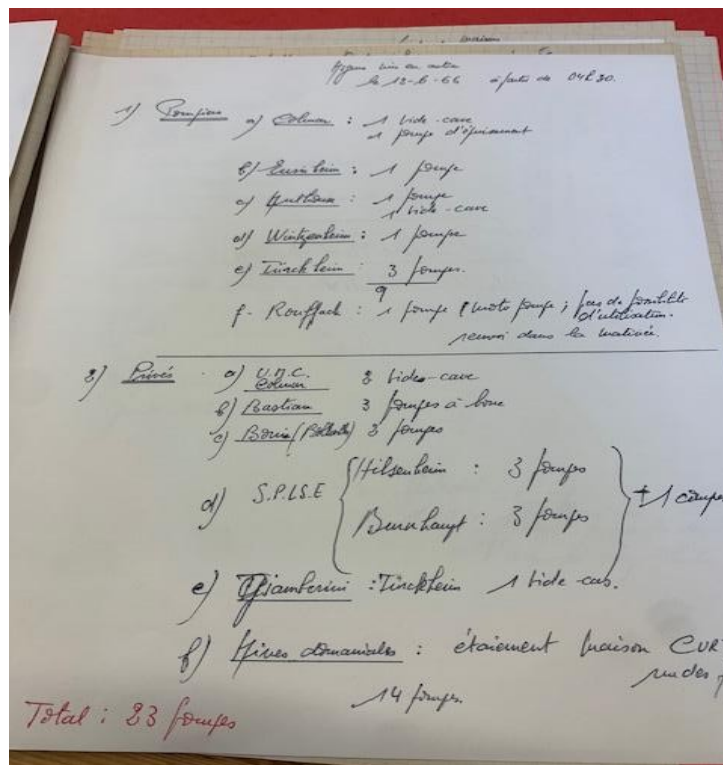 maison
Moyens mis en action
le 12-6-66 à partir de 04h30.
1) Pompiers a) Colmar : 1 vide-cave
1 pompe d'épuisement
b) Ensisheim : 1 pompe
c) Mulhouse : 1 pompe
1 vide-cave
d) Wintzenheim : 1 pompe
e) Türckheim : 3 pompes.
9
f - Rouffach : 1 pompe (moto pompe ; pas de possibilité
d'utilisation.
renvoi dans la matinée.
2) Privés a) U.M.C. 2 vides-cave
Colmar
b) Bastian 3 pompes à boue
c) 3 pompes
d) S.P.L.S.E Hilsenheim : 3 pompes
Burnhaupt : 3 pompes
± 1 compr
e) Giamberini : Türckheim 1 vide-cas.
f) Mines domaniales : étaiement maison CUR
rue des
14 pompes.
Total : 23 pompes